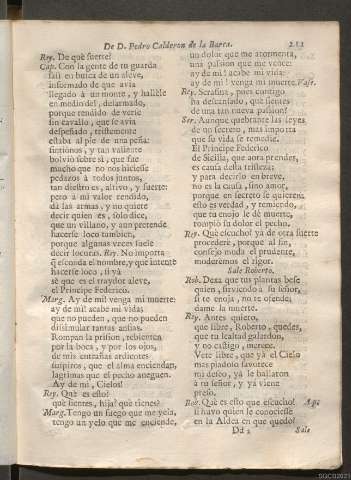 De D. Pedro Calderon de la Barca. 211
Rey. De què suerte?
Cap. Con la gente de tu guarda
salì en busca de un aleve,
informado de que avia
llegado à un monte, y hallèle
en medio del, desarmado,
porque rendido de verse
sin cavallo, que se avia
despeñado, tristemente
estaba al pie de una peña:
sintiònos, y tan valiente
bolviò sobre sì, que fue
mucho que no nos hiciesse
pedazos à todos juntos,
tan diestro es, altivo, y fuerte:
pero à mi valor rendido,
diò las armas, y no quiere
decir quien es, solo dice,
que un villano, y aun pretende
hacerse loco tambien,
porque algunas veces suele
decir locuras. Rey. No importa
q esconda el nombre, y que intente
hacerse loco, si yà
sè que es el traydor aleve,
el Principe Federico.
Marg. Ay de mi! venga mi muerte:
ay de mi! acabe mi vida;
que no pueden, que no pueden
dissimular tantas ansias.
Rompan la prision, rebienten
por la boca, y por los ojos,
de mis entrañas ardientes
suspiros, que el alma enciendan,
lagrimas que el pecho aneguen.
Ay de mi, Cielos!
Rey. Què es esto?
què sientes, hija? què tienes?
Marg. Tengo un fuego que me yela,
tengo un yelo que me enciende,
un dolor que me atormenta,
una passion que me vence:
ay de mi! acabe mi vida;
ay de mi! venga mi muerte. Vase.
Rey. Serafina, pues contigo
ha descansado, què sientes
de una tan nueva passion?
Ser. Aunque quebrante las leyes
de un secreto, mas importa
que su vida se remedie.
El Principe Federico
de Sicilia, que aora prender,
es causa desta tristeza;
y para decirlo en breve,
no es la causa, sino amor,
porque en secreto se quieren:
esto es verdad, y temiendo,
que tu enojo le dè muerte,
rompiò su dolor el pecho.
Rey. Què escucho! ya de otra suerte
procederè, porque al fin,
consejo muda el prudente,
moderemos el rigor.
Sale Roberto.
Rob. Dexa que tus plantas bese
quien, sirviendo à su señor,
si te enoja, no te ofende:
dame la muerte.
Rey. Antes quiero,
que libre, Roberto, quedes,
que tu lealtad galardon,
y no castigo, merece.
Vete libre, que yà el Cielo
mas piadoso favorece
mi deseo, yà le hallaron
à tu señor, y yà viene
preso.
Rob. Què es esto que escucho! Ap.
si huvo quien le conociesse
en la Aldea en que quedò?
Dd 2 Sale
SGCB2021